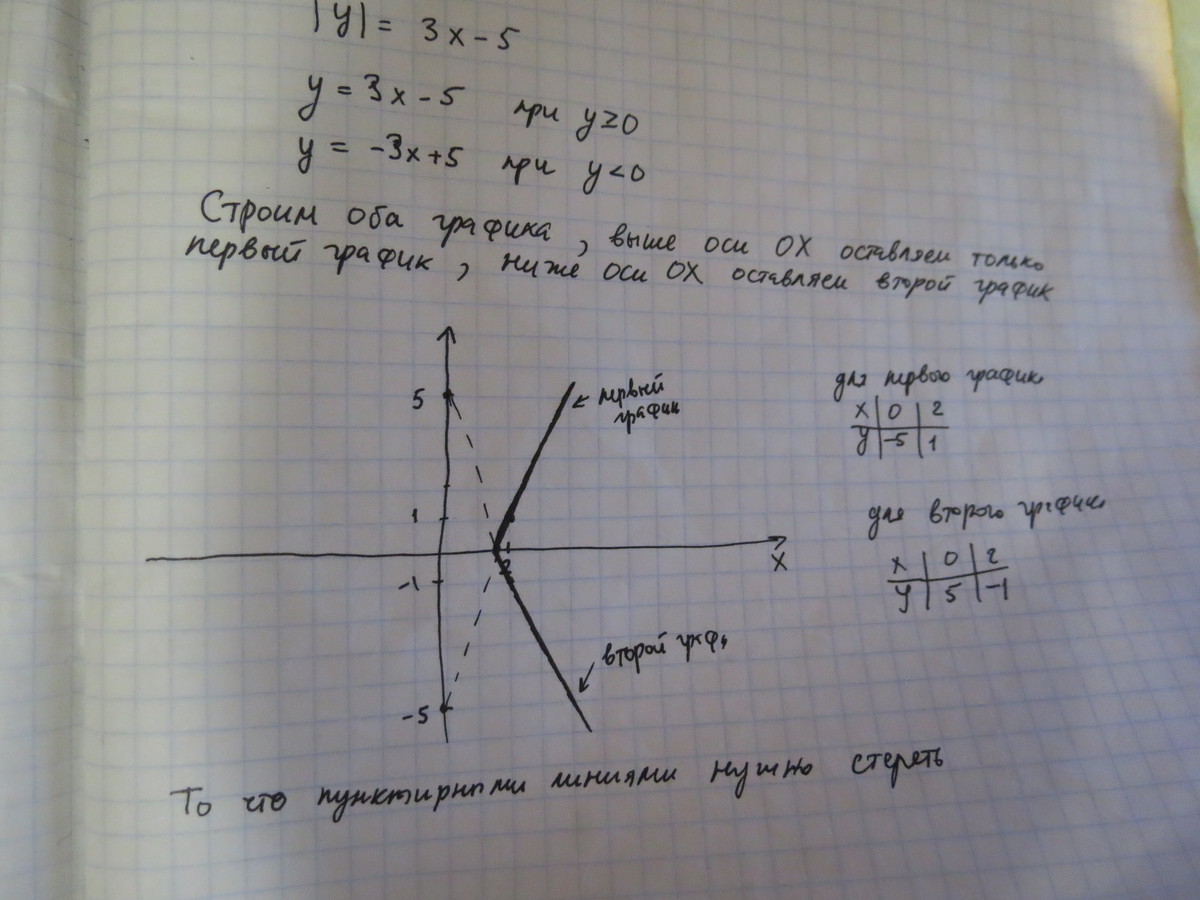 |y| = 3x - 5
y = 3x - 5 при y ≥ 0
y = -3x + 5 при y < 0
Строим оба графика, выше оси OX оставляем только
первый график, ниже оси OX оставляем второй график
5
1
-1
-5
2
X
← первый
график
второй граф
для первого графика
x | 0 | 2
y | -5 | 1
для второго графика
x | 0 | 2
y | 5 | -1
То что пунктирными линиями нужно стереть